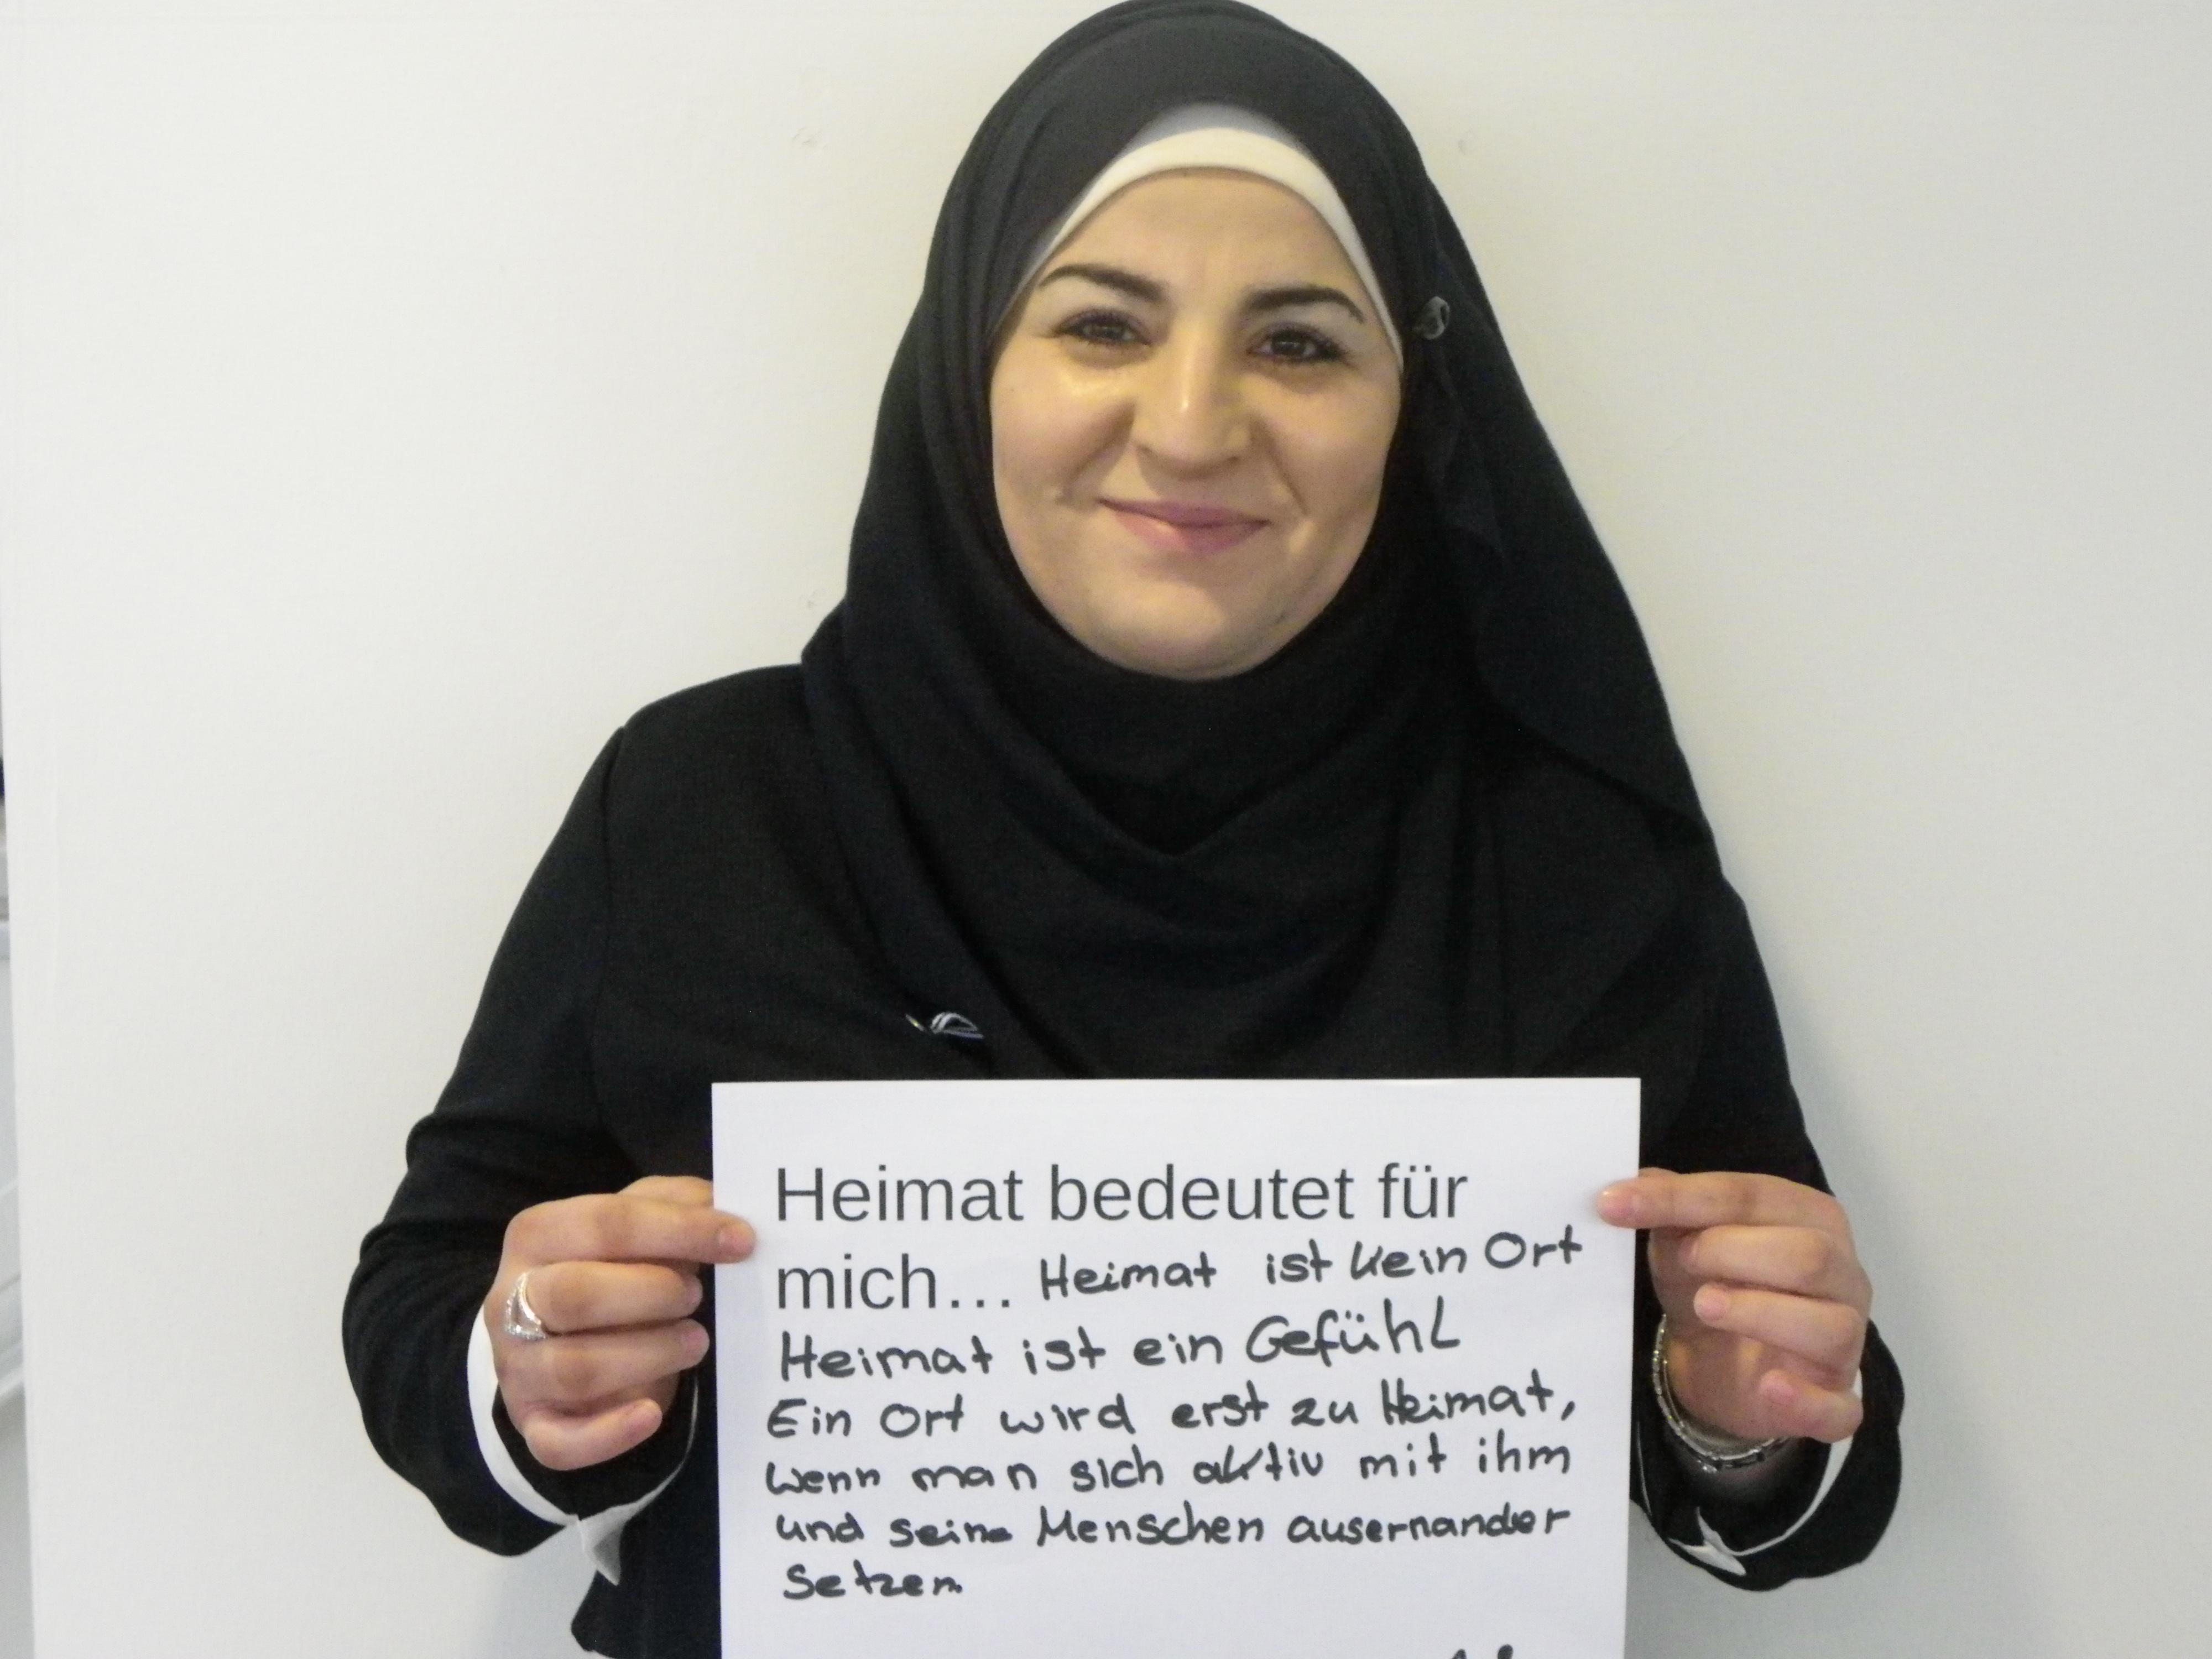 Heimat bedeutet für
mich... Heimat ist kein Ort
Heimat ist ein Gefühl
Ein Ort wird erst zu Heimat,
wenn man sich aktiv mit ihm
und seine Menschen ausernander
setzen